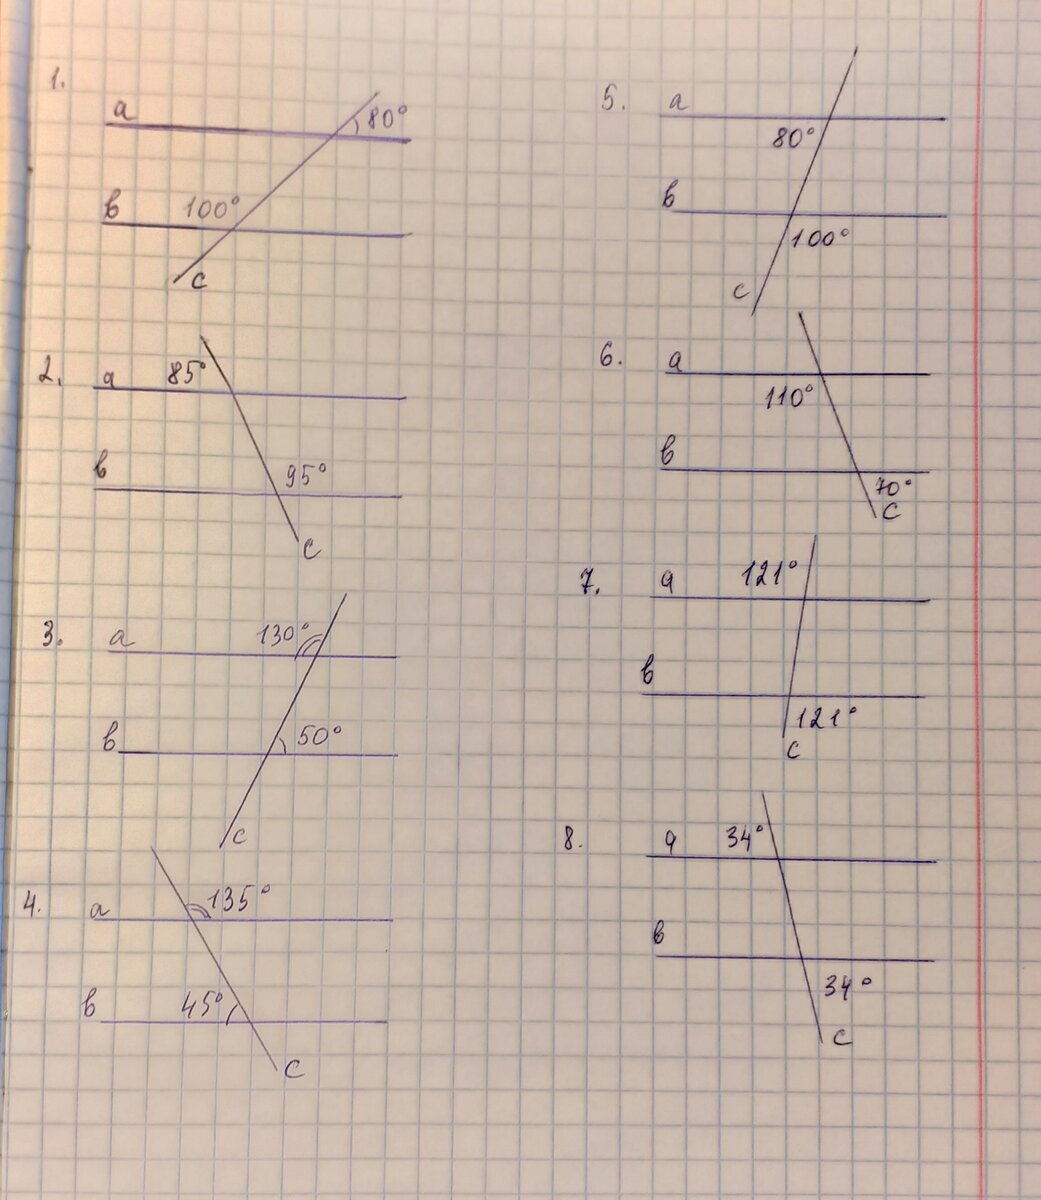 1.
a
80°
в
100°
c
2.
a
85°
в
95°
c
3.
a
130°
в
50°
c
4.
a
135°
в
45°
c
5.
a
80°
в
100°
c
6.
a
110°
в
70°
c
7.
a
121°
в
121°
c
8.
a
34°
в
34°
c